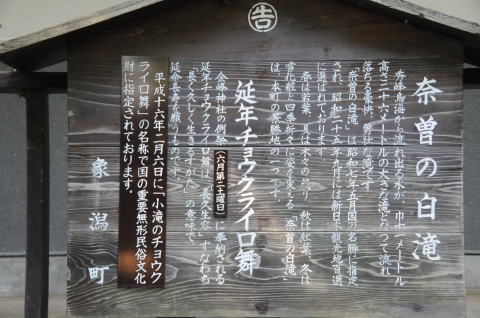 告
奈曽の白滝
秀峰鳥海から流れ出る水が、巾十一メートル
高さ二十六メートルの大きな滝となって流れ
落ちる豪快、勇壮な滝です。
「奈曽の白滝」は昭和七年五月国の名勝に指定
され、昭和二十五年九月には新日本観光地百選
に選ばれております。
春は若葉、夏は木々の緑、秋は紅葉、冬は
雪化粧と四季折々に姿を変える「奈曽の白滝」
は、本町の景勝地の一つです。
延年チョウクライロ舞
金峰神社の例祭(六月第二土曜日)に奉納される
延年チョウクライロ舞は「長久生容」すなわち
「長く久しく生きる容かたち」の意味で、
延命長寿を願うものです。
平成十六年二月六日に「小滝のチョウク
ライロ舞」の名称で国の重要無形民俗文化
財に指定されております。
象潟町